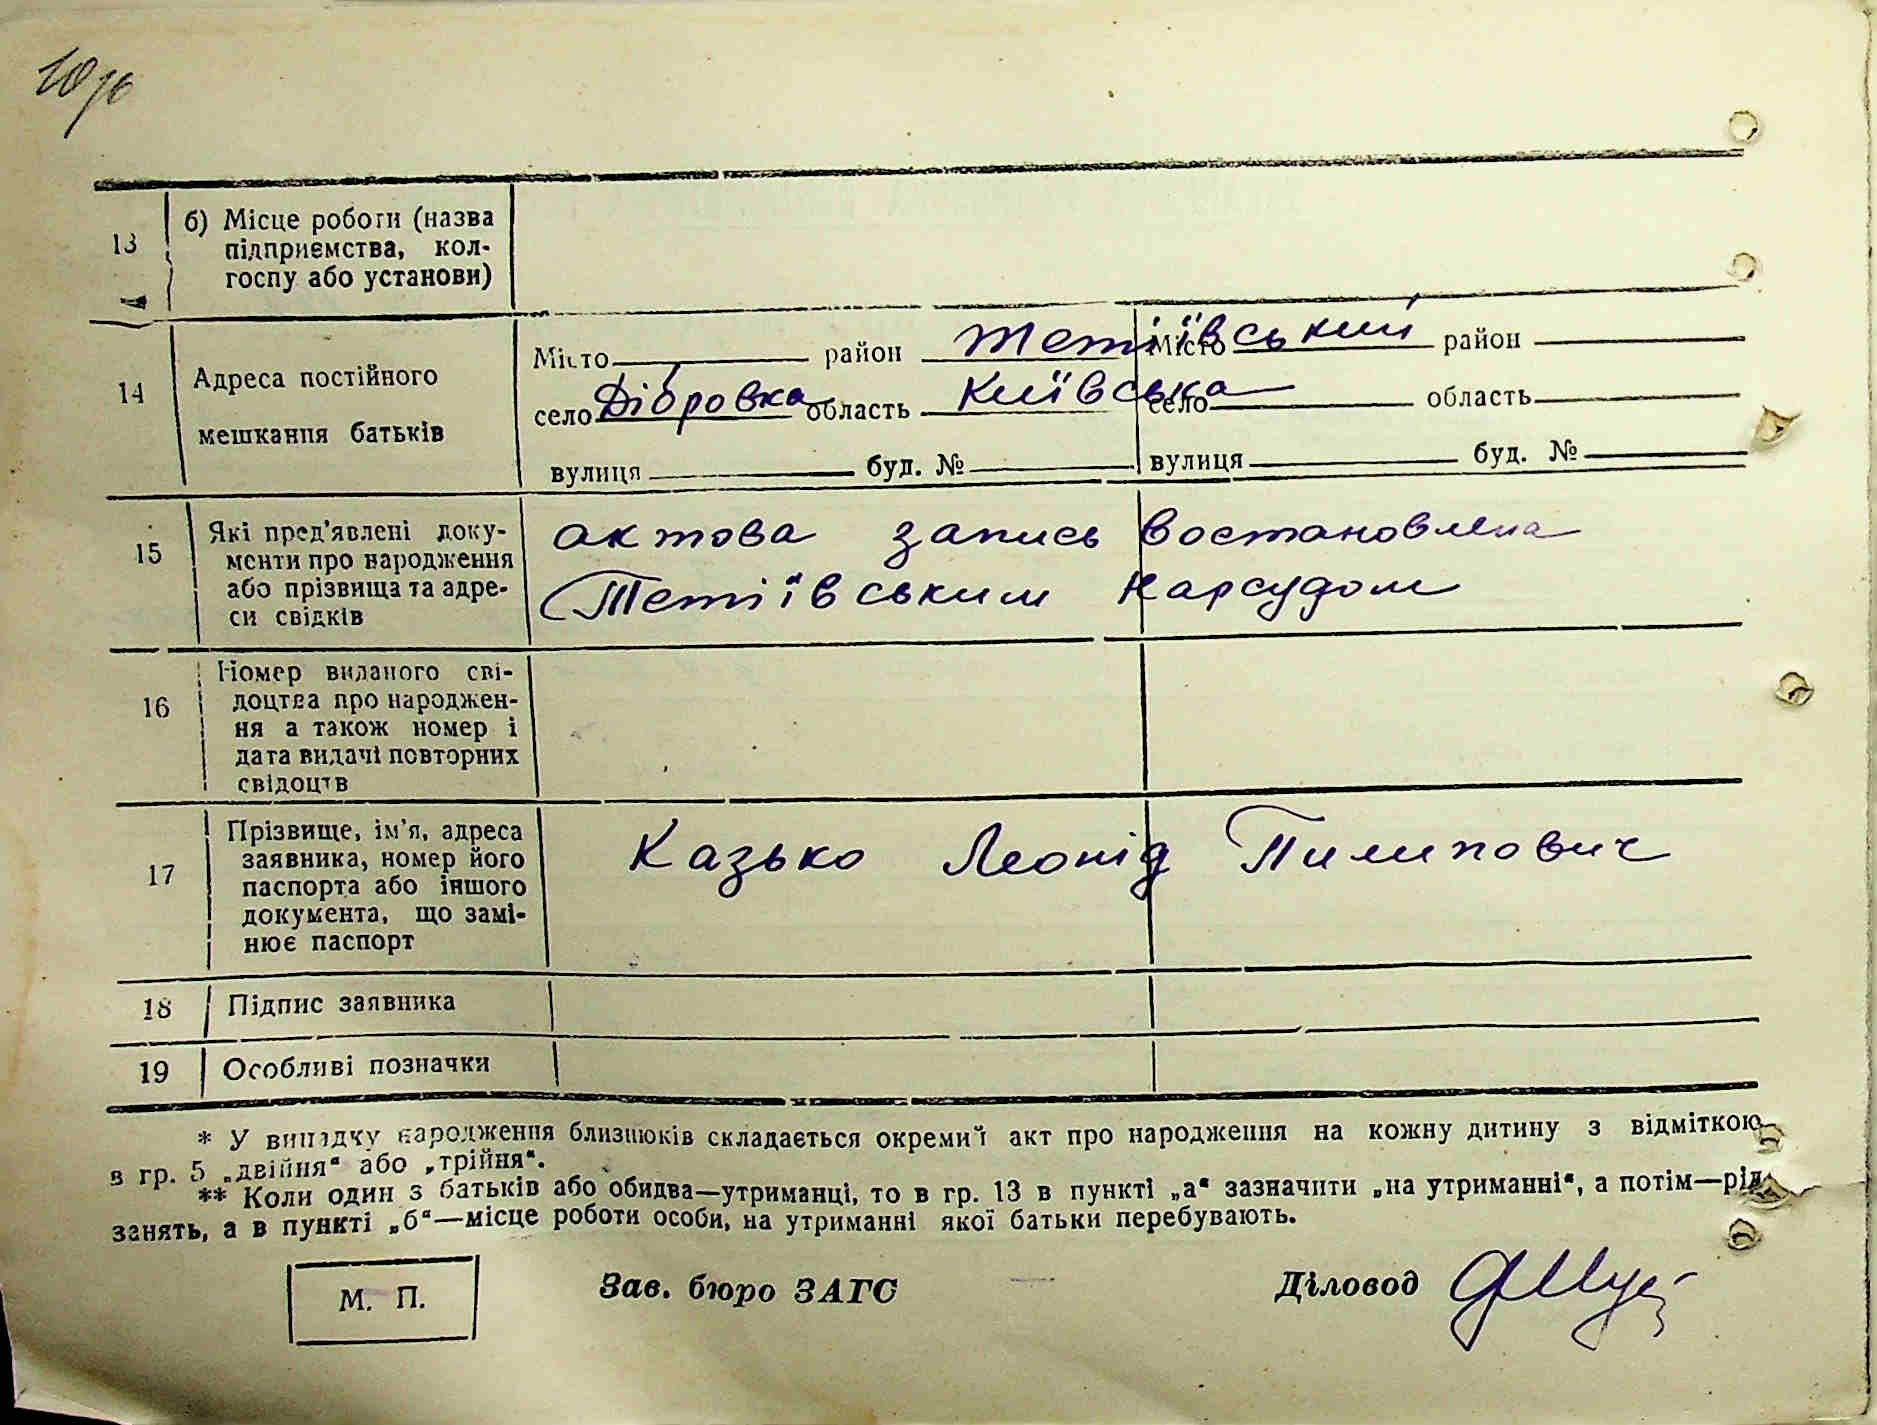 13 б) Місце роботи (назва
підприємства, кол-
госпу або установи)
Місто район Тетіївський Місто район
14 Адреса постійного
село Дібровка область Київська село область
мешкання батьків
вулиця буд. № вулиця буд. №
15 Які пред'явлені доку-
менти про народження
або прізвища та адре-
си свідків
актова запись востановлена
Тетіївським Нарсудом
16 Номер виданого сві-
доцтва про народжен-
ня а також номер і
дата видачі повторних
свідоцтв
17 Прізвище, ім'я, адреса
заявника, номер його
паспорта або іншого
документа, що замі-
нює паспорт
Казько Леонід Пилипович
18 Підпис заявника
19 Особливі позначки
* У випадку народження близнюків складається окремий акт про народження на кожну дитину з відміткою
в гр. 5 „двійня“ або „трійня“.
** Коли один з батьків або обидва—утриманці, то в гр. 13 в пункті „а“ зазначити „на утриманні“, а потім—рід
занять, а в пункті „б“—місце роботи особи, на утриманні якої батьки перебувають.
М. П. Зав. бюро ЗАГС Діловод